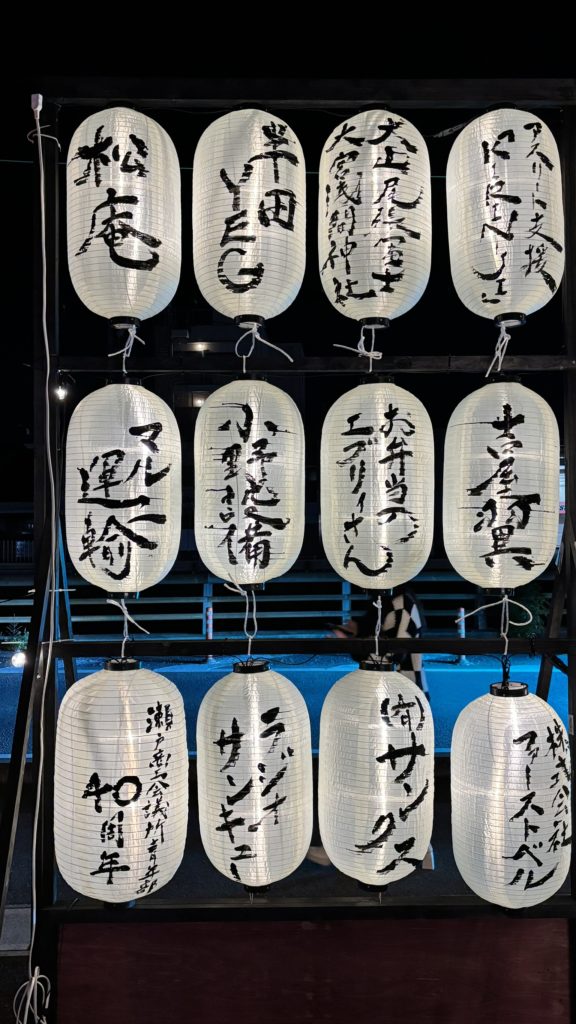 松庵
半田
YEG
犬山尾張富士
大宮浅間神社
アスリート支援
KIRENJI
マルイ
運輸
小野設備
お弁当の
エブリイさん
古屋羽異
瀬戸商工会議所青年部
40周年
ラジオ
サンキュー
(有)サンクス
株式会社
ファーストベル